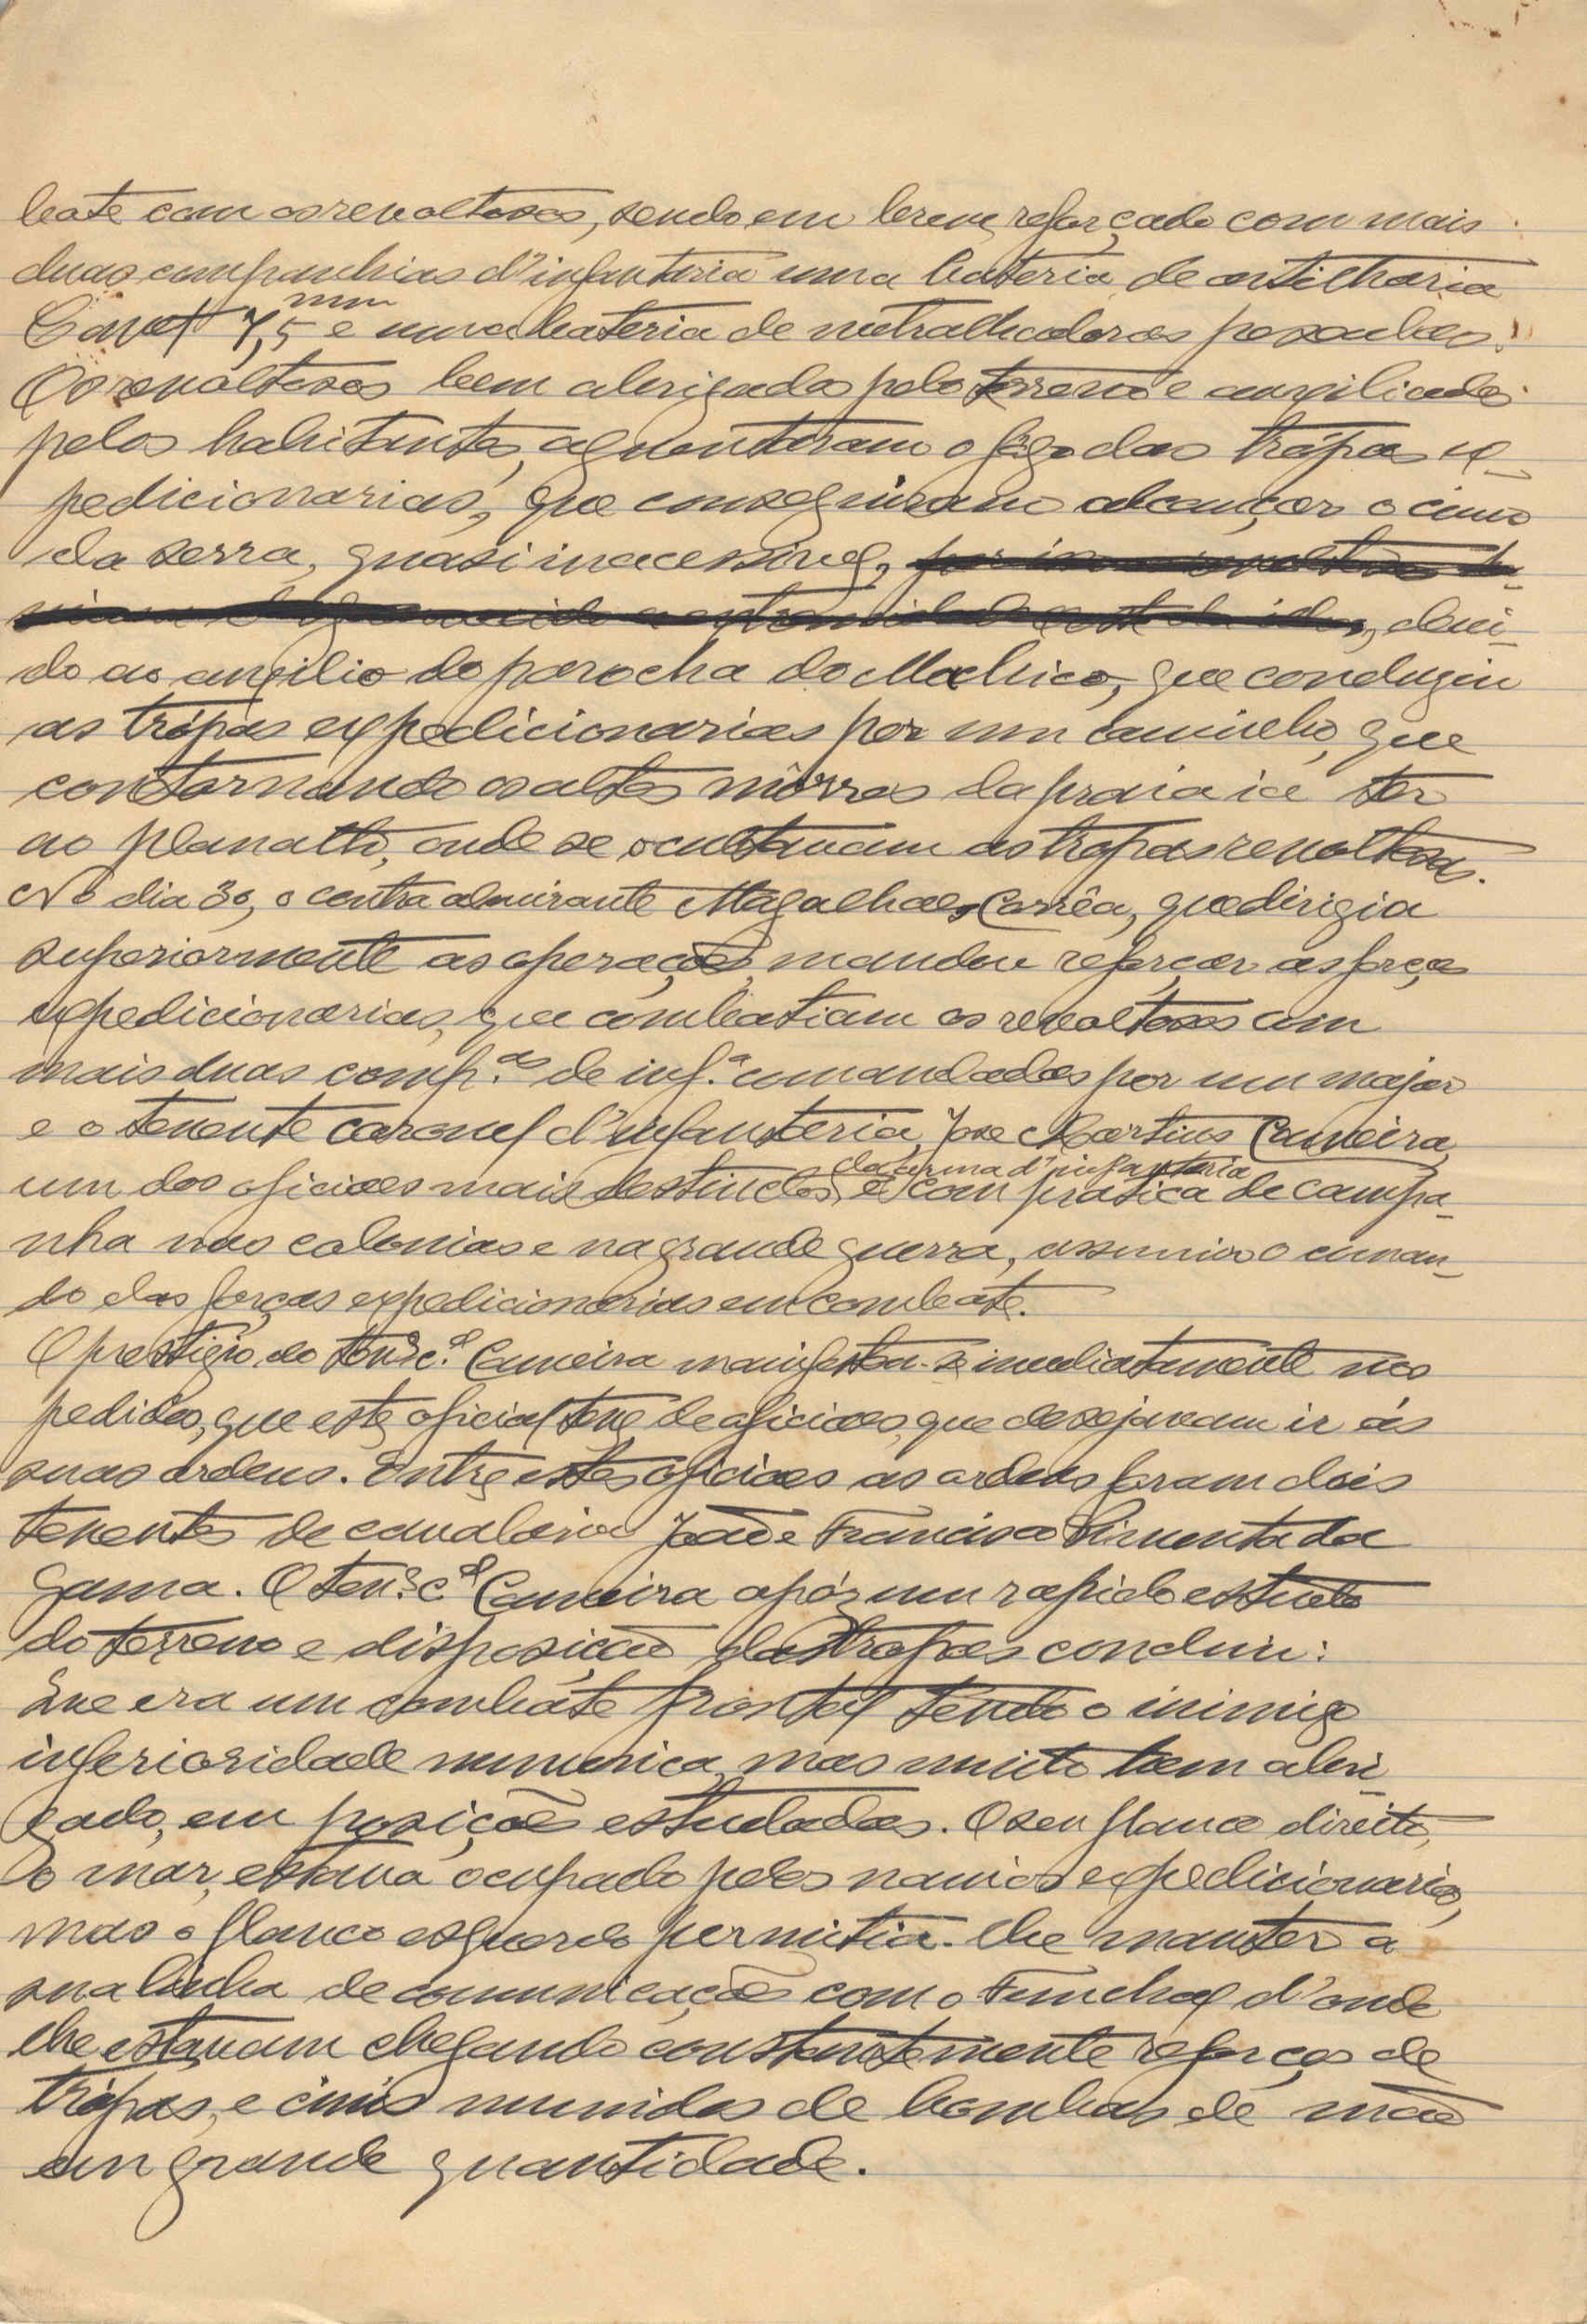 bate com os revoltosos, sendo em breve reforçado com mais
duas companhias d'infantaria uma bateria de artilharia
Canet 7,5 mm e uma bateria de metralhadoras pesadas.
Os revoltosos bem abrigados pelo terreno e auxiliados
pelos habitantes, aguentaram o fogo das trópas ex-
pedicionarias, que conseguiram alcançar o cimo
da serra, quasi inacessivel,
, devi-
do ao auxilio do parocha do Machico, que conduziu
as trópas expedicionarias por um caminho, que
contornando os altos môrros da praia ia ter
ao planalto, onde se ocultavam as tropas revoltosas.
No dia 30, o contra almirante Magalhaes Corrêa, que dirigia
superiormente as operações, mandou reforçar as forças
expedicionarias, que combatiam os revoltosos com
mais duas comp.as de inf.a comandadas por um major
e o tenente coronel d'infantaria, José Martins Cameira,
um dos oficiaes mais destinctos da arma d'infantaria e com pratica de campa-
nha nas colonias e na grande guerra, assumiu o coman-
do das forças expedicionarias em combate.
O prestigio do ten.e c.el Cameira manifestou-se imediatamente nos
pedidos, que este oficial teve de oficiaes, que desejavam ir ás
suas ordens. Entre estes oficiaes ás ordens foram dois
tenentes de cavalaria João e Francisco Pimenta da
Gama. O ten.e c.el Cameira após um rapido estudo
do terreno e disposição das tropas concluiu:
Que era um combate frontal tendo o inimigo
inferioridade numerica, mas muito bem abri
gado, em posições estudadas. O seu flanco direito,
o mar, estava ocupado pelos navios expedicionarios,
mas o flanco esquerdo permitia-lhe manter a
sua linha de comunicações com o Funchal d'onde
lhe estavam chegando constantemente reforços de
trópas, e civis munidos de bombas de mão
em grande quantidade.